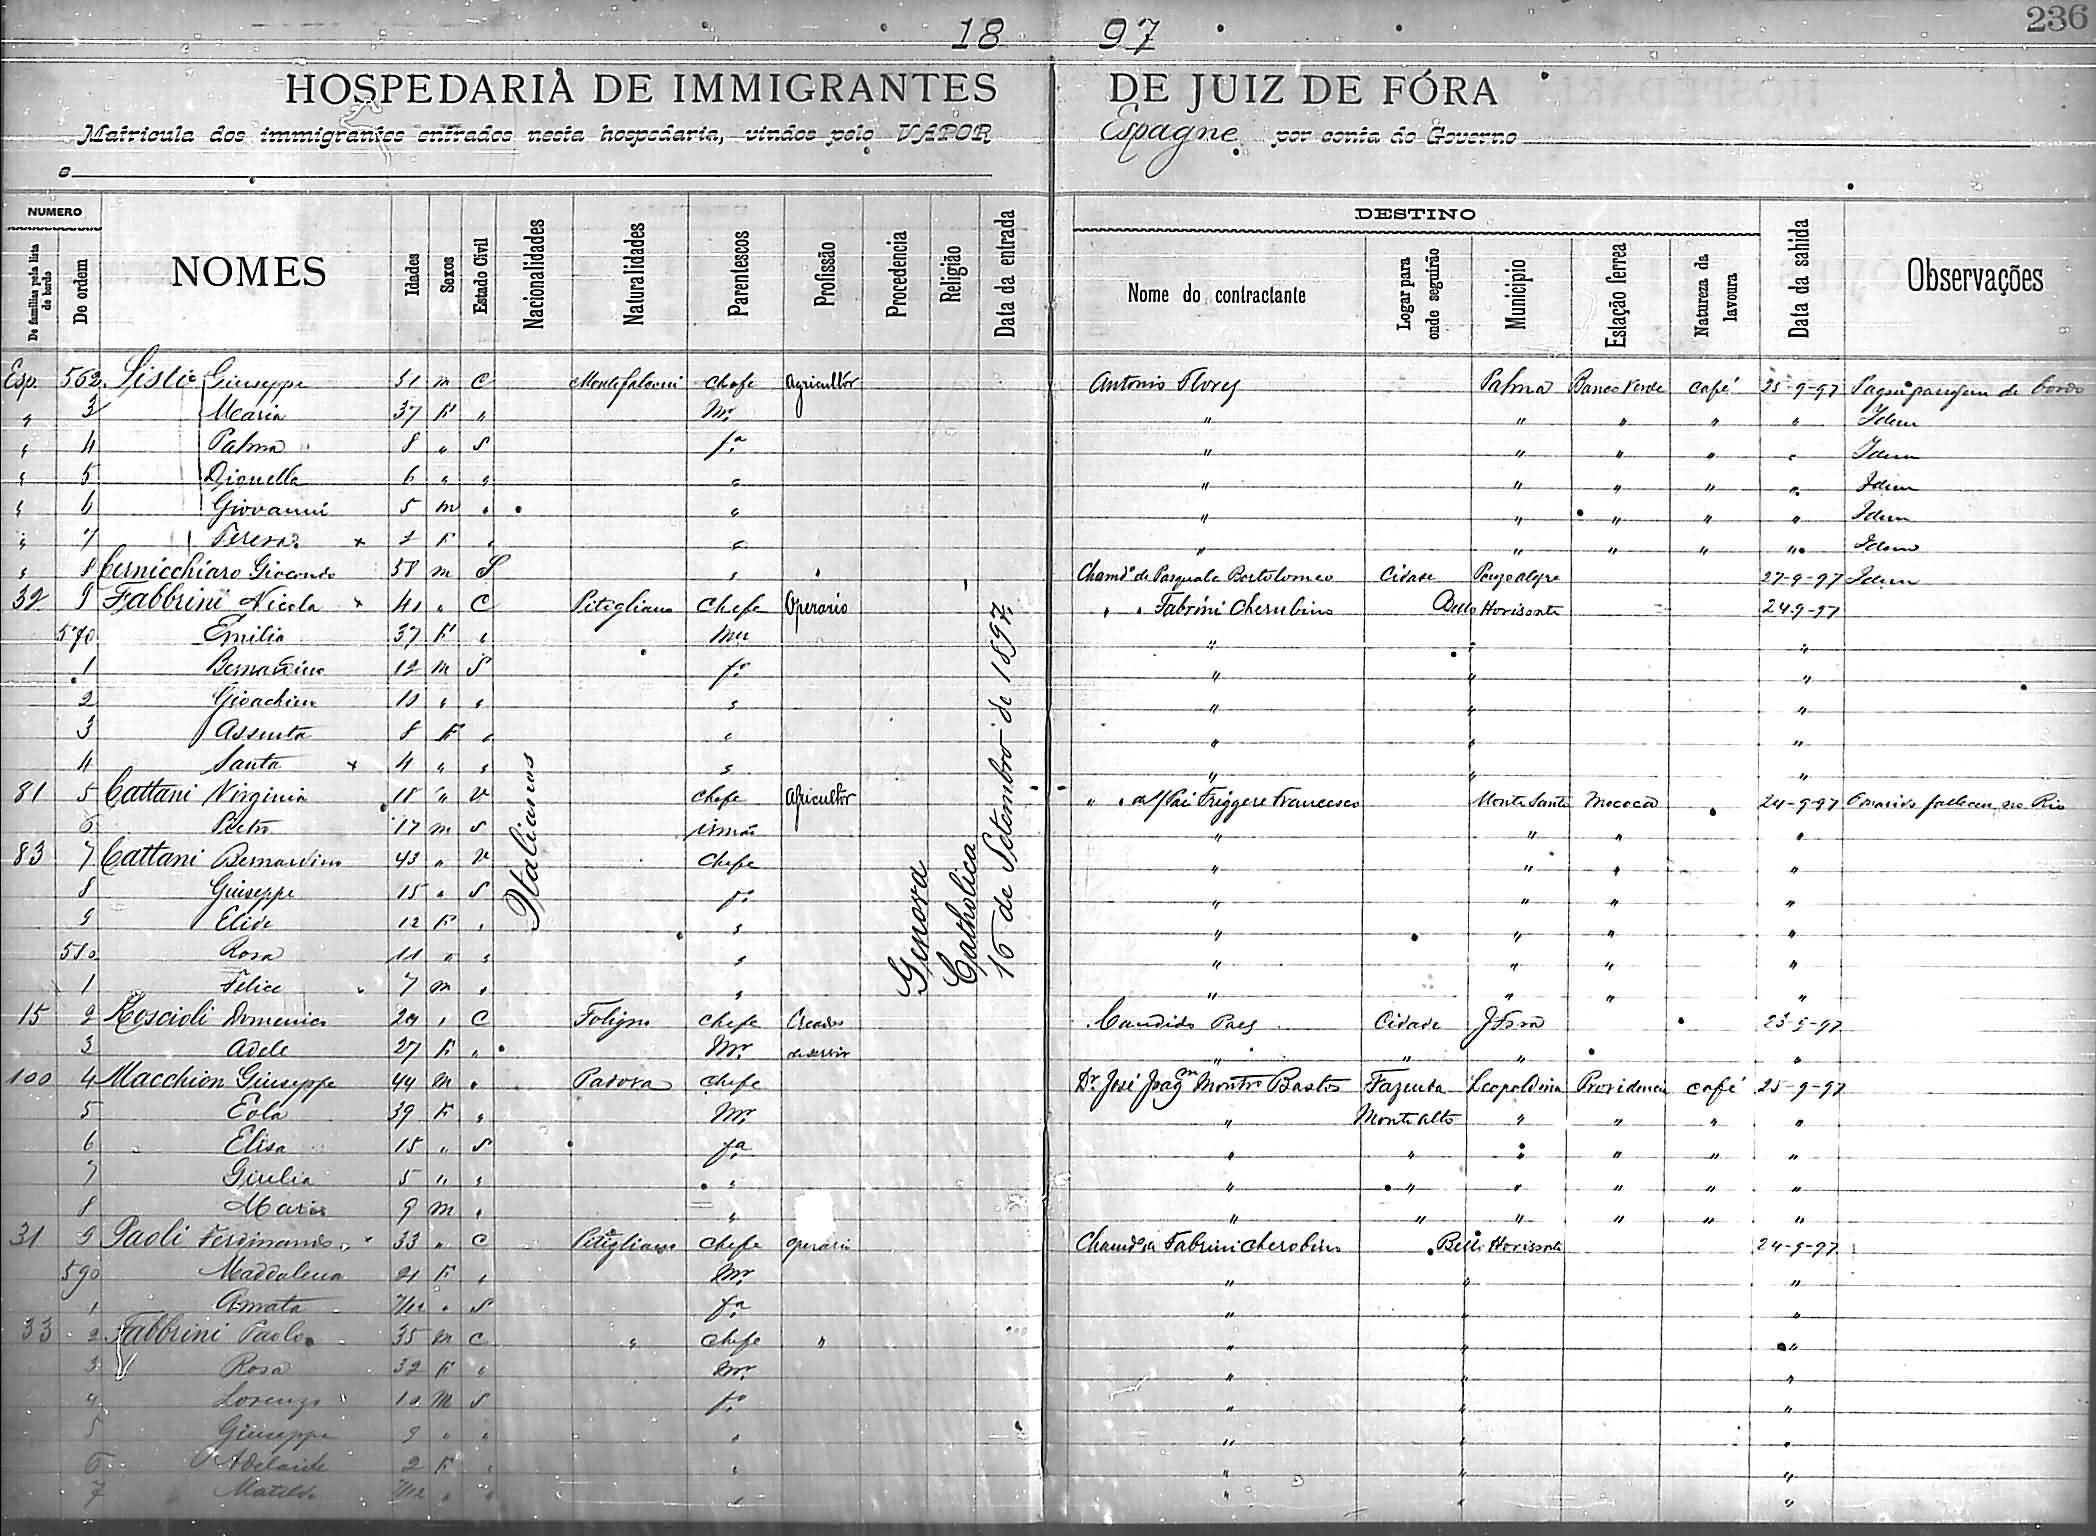 236
18 97
HOSPEDARIA DE IMMIGRANTES DE JUIZ DE FÓRA
Matricula dos immigrantes entrados nesta hospedaria, vindos pelo VAPOR Espagne por conta do Governo
e
NUMERO DESTINO
De familia pela lista de bordo De ordem NOMES Idades Sexos Estado Civil Nacionalidades Naturalidades Parentescos Profissão Procedencia Religião Data da entrada Nome do contractante Logar para onde seguirão Municipio Estação ferrea Natureza da lavoura Data da sahida Observações
Italianos
Genova
Catholica
16 de Setembro de 1897
Esp. 562 Giuseppe 51 m C Chefe Agricultor Antonio Flores Palma Banco Verde café 25-9-97 de bordo
" 3 Maria 37 F " Mr. " " " " " Idem
" 4 Palma 8 " S fa. " " " " " Idem
" 5 6 " " " " " " " " Idem
" 6 Giovanni 5 m " " " " " " " Idem
" 7 Tereza x 2 F " " " " " " " Idem
" 8 Cernicchiaro Giocondo 58 m S " Chamdo de Pasquale Bortolomeo Cidade Pouzo alegre 27-9-97 Idem
32 9 Fabbrini Nicola x 41 " C Pitigliano Chefe Operario " " Fabrini Cherubino Bello Horisonte 24-9-97
570 Emilia 37 F " Mer " " "
1 Bernardino 12 m S fo. " " "
2 Gioachino 10 " " " " " "
3 Assunta 8 F " " " " "
4 Santa x 4 " " " " " "
81 5 Cattani Virginia 18 " V Chefe Agricultor " " Pai Triggere Francesco Monte Santo Mococa 24-9-97 O marido falleceu no Rio
6 Pietro 17 m S irmão " " " "
83 7 Cattani Bernardino 43 " V Chefe " " " "
8 Giuseppe 15 " S fo. " " " "
9 Elide 12 F " " " " " "
580 Rosa 11 " " " " " " "
1 Felice 7 m " " " " " "
15 2 Roscioli Domenico 29 " C Foligno Chefe Creados Candido Paes Cidade J Fora 23-9-97
3 Adele 27 F " Mr. de servir " " " "
100 4 Macchion Giuseppe 44 m " Padova Chefe Dr. José Joaqm Montro Bastos Fazenda Leopoldina Providencia café 25-9-97
5 Eola 39 F " Mr. " Monte alto " " " "
6 Elisa 15 " S fa. " " " " " "
7 Giulia 5 " " " " " " " " "
8 Mario 9 m " " " " " " " "
31 9 Paoli Ferdinando 33 " C Pitigliano Chefe Operario Chamdo de Fabrini Cherobino Bello Horisonte 24-9-97
590 Maddalena 21 F " Mr. " " "
1 Amata 7/12 " S fa. " " "
33 2 Fabbrini Paolo 35 m C " Chefe " " " "
3 Rosa 32 F " Mr. " " "
4 Lorenzo 10 M S fo. " " "
5 Giuseppe 9 " " " " " "
6 Adelaide 2 F " " " " "
7 Matilde 7/12 " " " " " "